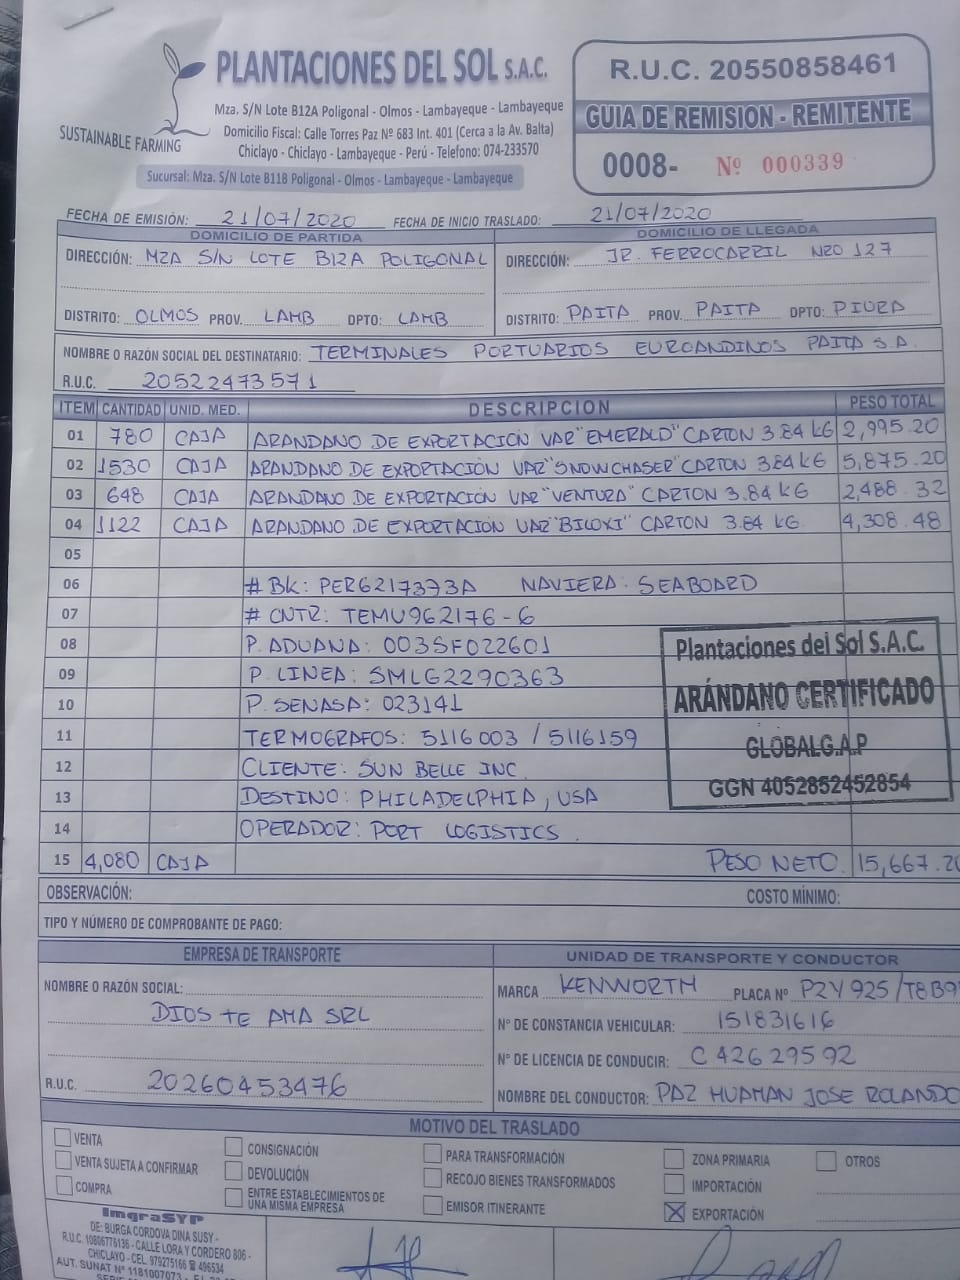 PLANTACIONES DEL SOL S.A.C.
SUSTAINABLE FARMING
Mza. S/N Lote B12A Poligonal - Olmos - Lambayeque - Lambayeque
Domicilio Fiscal: Calle Torres Paz Nº 683 Int. 401 (Cerca a la Av. Balta)
Chiclayo - Chiclayo - Lambayeque - Perú - Telefono: 074-233570
Sucursal: Mza. S/N Lote B11B Poligonal - Olmos - Lambayeque - Lambayeque
R.U.C. 20550858461
GUIA DE REMISION - REMITENTE
0008- Nº 000339
FECHA DE EMISIÓN: 21/07/2020 FECHA DE INICIO TRASLADO: 21/07/2020
DOMICILIO DE PARTIDA DOMICILIO DE LLEGADA
DIRECCIÓN: MZA S/N LOTE B12A POLIGONAL DIRECCIÓN: JR. FERROCARRIL NRO 127
DISTRITO: OLMOS PROV. LAMB DPTO: LAMB DISTRITO: PAITA PROV. PAITA DPTO: PIURA
NOMBRE O RAZÓN SOCIAL DEL DESTINATARIO: TERMINALES PORTUARIOS EUROANDINOS PAITA S.A.
R.U.C. 20522473571
ITEM CANTIDAD UNID. MED. DESCRIPCION PESO TOTAL
01 780 CAJA ARANDANO DE EXPORTACIÓN VAR "EMERALD" CARTON 3.84 KG 2,995.20
02 1530 CAJA ARANDANO DE EXPORTACIÓN VAR "SNOWCHASER" CARTON 3.84 KG 5,875.20
03 648 CAJA ARANDANO DE EXPORTACIÓN VAR "VENTURA" CARTON 3.84 KG 2,488.32
04 1122 CAJA ARANDANO DE EXPORTACIÓN VAR "BILOXI" CARTON 3.84 KG 4,308.48
05
06 # BK: PER6217373A NAVIERA: SEABOARD
07 # CNTR: TEMU962176-6
08 P. ADUANA: 003SF022601
09 P. LINEA: SMLG2290363
10 P. SENASA: 023141
11 TERMOGRAFOS: 5116003 / 5116159
12 CLIENTE: SUN BELLE INC
13 DESTINO: PHILADELPHIA, USA
14 OPERADOR: PORT LOGISTICS.
15 4,080 CAJA PESO NETO. 15,667.20
Plantaciones del Sol S.A.C.
ARÁNDANO CERTIFICADO
GLOBALG.A.P
GGN 4052852452854
OBSERVACIÓN: COSTO MÍNIMO:
TIPO Y NÚMERO DE COMPROBANTE DE PAGO:
EMPRESA DE TRANSPORTE UNIDAD DE TRANSPORTE Y CONDUCTOR
NOMBRE O RAZÓN SOCIAL: MARCA KENWORTH PLACA Nº P2Y925/T8B9
DIOS TE AMA SRL Nº DE CONSTANCIA VEHICULAR: 151831616
Nº DE LICENCIA DE CONDUCIR: C42629592
R.U.C. 20260453476 NOMBRE DEL CONDUCTOR: PAZ HUAMAN JOSE ROLANDO
MOTIVO DEL TRASLADO
VENTA CONSIGNACIÓN PARA TRANSFORMACIÓN ZONA PRIMARIA OTROS
VENTA SUJETA A CONFIRMAR DEVOLUCIÓN RECOJO BIENES TRANSFORMADOS IMPORTACIÓN
COMPRA ENTRE ESTABLECIMIENTOS DE UNA MISMA EMPRESA EMISOR ITINERANTE X EXPORTACIÓN
ImgraSYP
DE: BURGA CORDOVA DINA SUSY -
R.U.C. 10806776136 - CALLE LORA Y CORDERO 806 -
CHICLAYO - CEL. 979275166 ☎ 496534
AUT. SUNAT Nº 1181007073 -